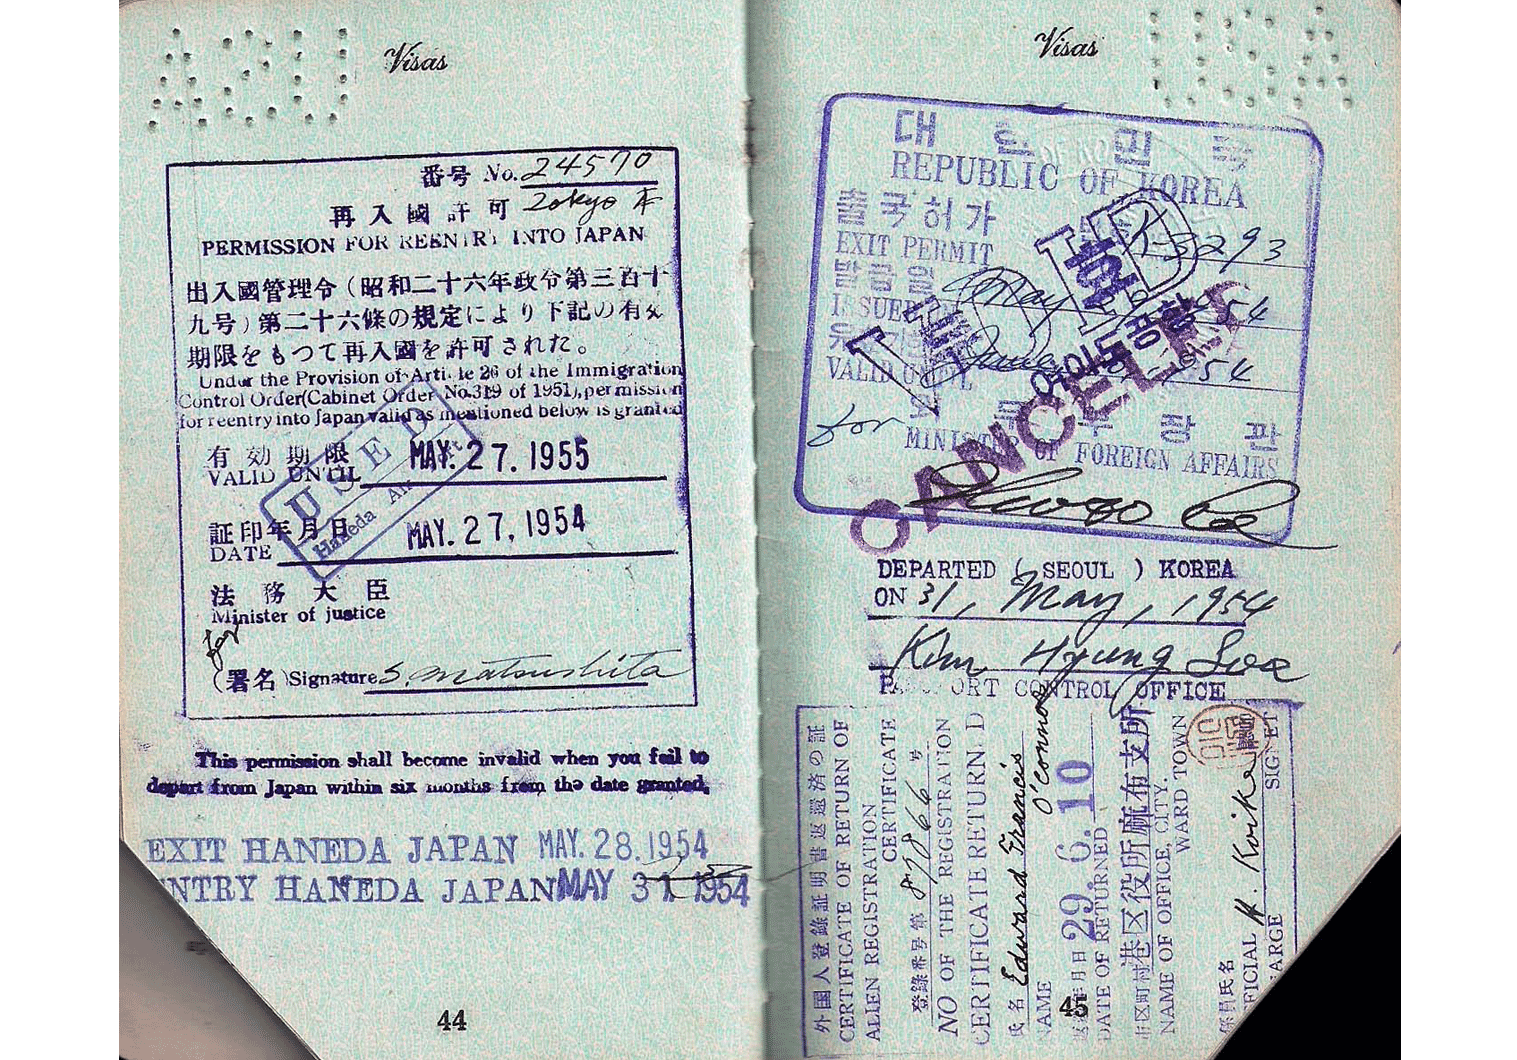 Visas
番号 No. 24570
再入國許可 Tokyo
PERMISSION FOR REENTRY INTO JAPAN
出入國管理令(昭和二十六年政令第三百十
九号)第二十六條の規定により下記の有效
期限をもつて再入國を許可された。
Under the Provision of Article 26 of the Immigration
Control Order(Cabinet Order No.319 of 1951),permission
for reentry into Japan valid as mentioned below is granted
有効期限
VALID UNTIL MAY. 27. 1955
USED
Haneda Air
証印年月日
DATE MAY. 27, 1954
法務大臣
Minister of justice
for
(署名)Signature S. Matsushita
This permission shall become invalid when you fail to
depart from Japan within six months from the date granted.
EXIT HANEDA JAPAN MAY. 28. 1954
ENTRY HANEDA JAPAN MAY 31 1954
44
Visas
대한민국
REPUBLIC OF KOREA
출국허가
EXIT PERMIT K-3293
발급일
ISSUED May 1954
VALID UNTIL 1954
여의도공항
CANCELLED
for 외무부장관
MINISTER OF FOREIGN AFFAIRS
DEPARTED (SEOUL) KOREA
ON 31, May, 1954
Kim Hyung
PASSPORT CONTROL OFFICE
外國人登錄証明書返還済の証
CERTIFICATE OF RETURN OF
ALIEN REGISTRATION
CERTIFICATE
登錄番号第 87866 号
NO OF THE REGISTRATION
CERTIFICATE RETURN. D
氏名 Edward Francis
NAME O'Connor
年月日 29. 6. 10
DATE OF RETURNED
市区町村 港区役所麻布支所
NAME OF OFFICE, CITY.
WARD TOWN
氏名
OFFICIAL
SIGNET
45